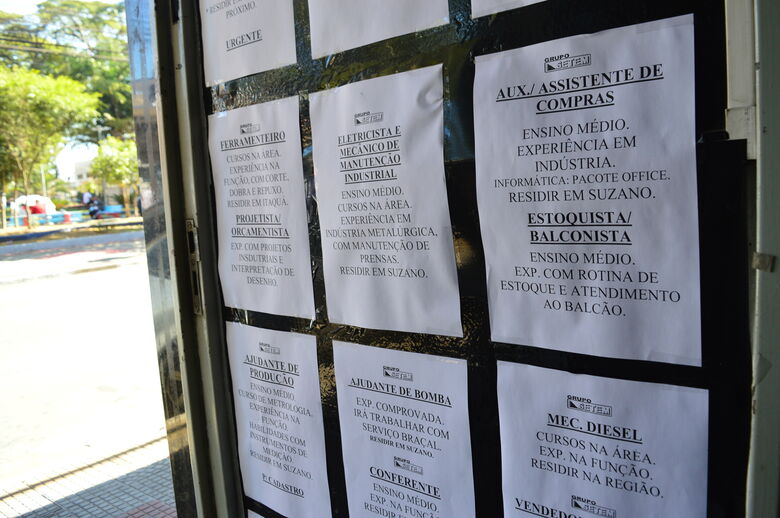 * RESIDIR EM
PRÓXIMO.
URGENTE
GRUPO
SETEM
FERRAMENTEIRO
CURSOS NA ÁREA.
EXPERIÊNCIA NA
FUNÇÃO, COM CORTE,
DOBRA E REPUXO.
RESIDIR EM ITAQUÁ.
PROJETISTA/
ORÇAMENTISTA
EXP. COM PROJETOS
INSDUTRIAIS E
INTERPRETAÇÃO DE
DESENHO.
GRUPO
SETEM
ELETRICISTA E
MECÂNICO DE
MANUTENÇÃO
INDUSTRIAL
ENSINO MÉDIO.
CURSOS NA ÁREA.
EXPERIÊNCIA EM
INDÚSTRIA METALÚRGICA,
COM MANUTENÇÃO DE
PRENSAS.
RESIDIR EM SUZANO.
GRUPO
SETEM
AUX./ ASSISTENTE DE
COMPRAS
ENSINO MÉDIO.
EXPERIÊNCIA EM
INDÚSTRIA.
INFORMÁTICA: PACOTE OFFICE.
RESIDIR EM SUZANO.
ESTOQUISTA/
BALCONISTA
ENSINO MÉDIO.
EXP. COM ROTINA DE
ESTOQUE E ATENDIMENTO
AO BALCÃO.
GRUPO
SETEM
AJUDANTE DE
PRODUÇÃO
ENSINO MÉDIO
CURSO DE METROLOGIA.
EXPERIÊNCIA NA
FUNÇÃO.
HABILIDADES COM
INSTRUMENTOS DE
MEDIÇÃO.
RESIDIR EM SUZANO.
P/ CADASTRO
GRUPO
SETEM
AJUDANTE DE BOMBA
EXP. COMPROVADA.
IRÁ TRABALHAR COM
SERVIÇO BRAÇAL.
RESIDIR EM SUZANO.
GRUPO
SETEM
CONFERENTE
ENSINO MÉDIO.
EXP. NA FUNÇÃO.
RESIDIR EM SUZANO.
GRUPO
SETEM
MEC. DIESEL
CURSOS NA ÁREA.
EXP. NA FUNÇÃO.
RESIDIR NA REGIÃO.
GRUPO
SETEM